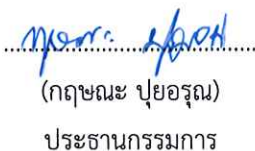 (กฤษณะ ปุยอรุณ)
ประธานกรรมการ